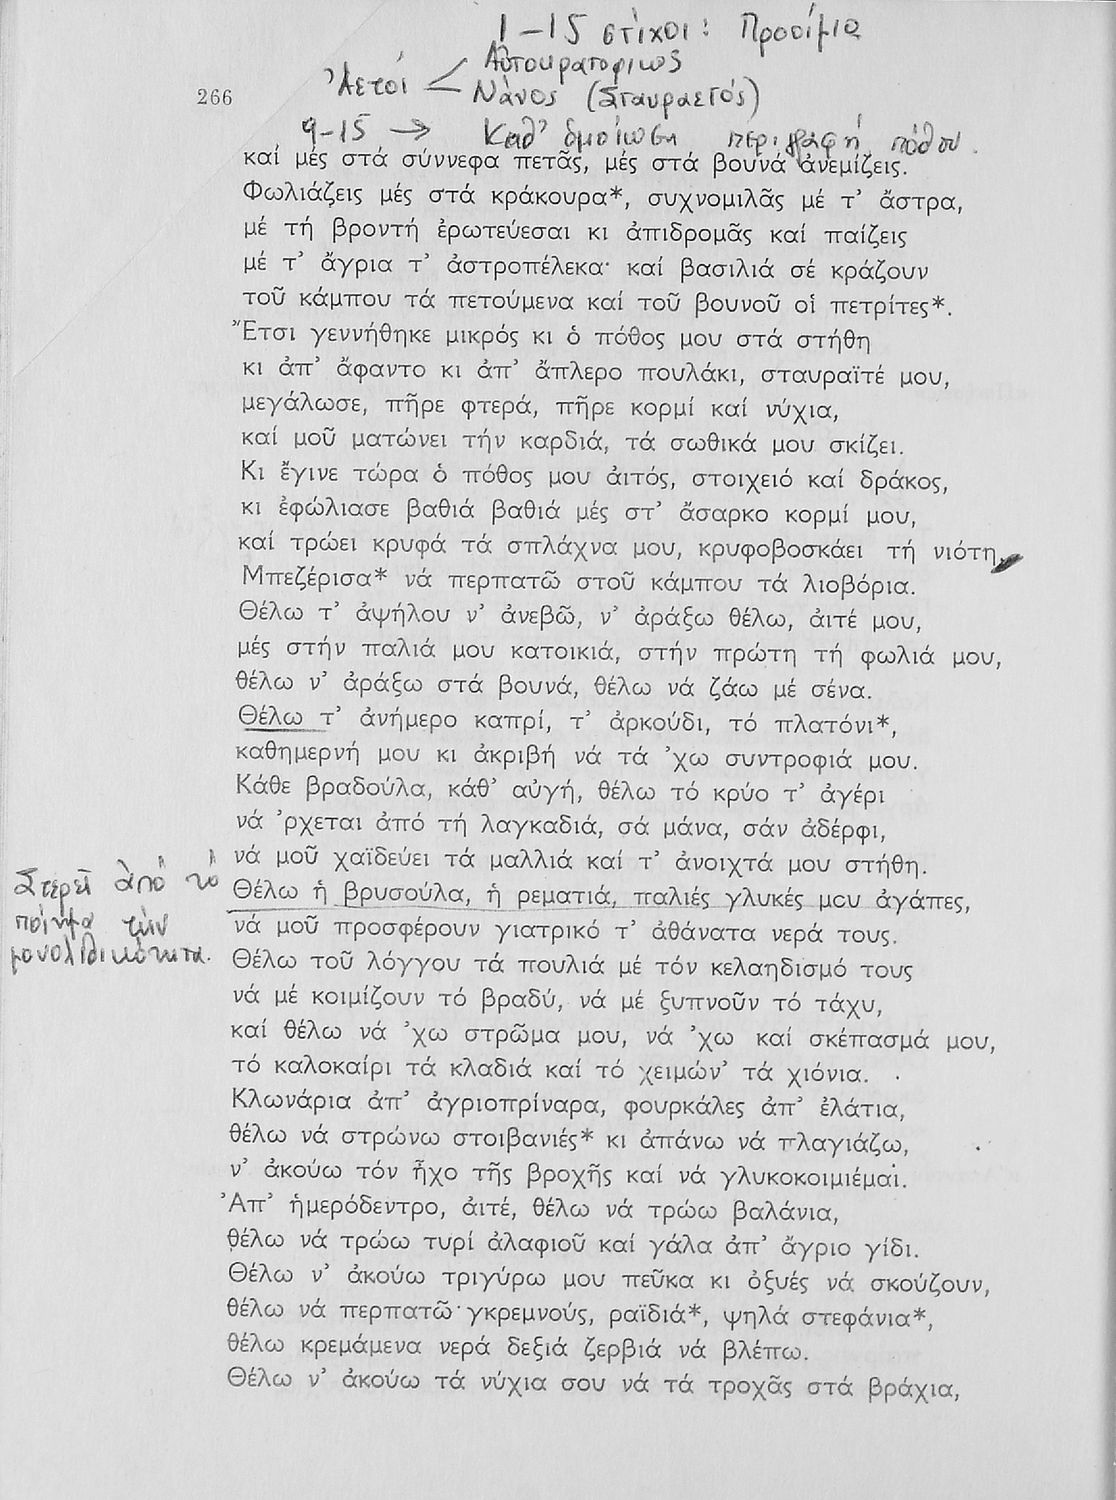 1-15 στίχοι: Προοίμιο
Ἀετοί < Αὐτοκρατορικός
Νάνος (Σταυραετός)
266
9-15 → Καθ' ὁμοίωση περιγραφή πόθου.
καί μές στά σύννεφα πετᾶς, μές στά βουνά ἀνεμίζεις.
Φωλιάζεις μές στά κράκουρα*, συχνομιλᾶς μέ τ' ἄστρα,
μέ τή βροντή ἐρωτεύεσαι κι ἀπιδρομᾶς καί παίζεις
μέ τ' ἄγρια τ' ἀστροπέλεκα· καί βασιλιά σέ κράζουν
τοῦ κάμπου τά πετούμενα καί τοῦ βουνοῦ οἱ πετρίτες*.
Ἔτσι γεννήθηκε μικρός κι ὁ πόθος μου στά στήθη
κι ἀπ' ἄφαντο κι ἀπ' ἄπλερο πουλάκι, σταυραϊτέ μου,
μεγάλωσε, πῆρε φτερά, πῆρε κορμί καί νύχια,
καί μοῦ ματώνει τήν καρδιά, τά σωθικά μου σκίζει.
Κι ἔγινε τώρα ὁ πόθος μου ἀιτός, στοιχειό καί δράκος,
κι ἐφώλιασε βαθιά βαθιά μές στ' ἄσαρκο κορμί μου,
καί τρώει κρυφά τά σπλάχνα μου, κρυφοβοσκάει τή νιότη.
Μπεζέρισα* νά περπατῶ στοῦ κάμπου τά λιοβόρια.
Θέλω τ' ἀψήλου ν' ἀνεβῶ, ν' ἀράξω θέλω, ἀιτέ μου,
μές στήν παλιά μου κατοικιά, στήν πρώτη τή φωλιά μου,
θέλω ν' ἀράξω στά βουνά, θέλω νά ζάω μέ σένα.
Θέλω τ' ἀνήμερο καπρί, τ' ἀρκούδι, τό πλατόνι*,
καθημερνή μου κι ἀκριβή νά τά 'χω συντροφιά μου.
Κάθε βραδούλα, κάθ' αὐγή, θέλω τό κρύο τ' ἀγέρι
νά 'ρχεται ἀπό τή λαγκαδιά, σά μάνα, σάν ἀδέρφι,
νά μοῦ χαϊδεύει τά μαλλιά καί τ' ἀνοιχτά μου στήθη.
Στερεῖ ἀπό τό
ποίημα τήν
μονολιθικότητα.
Θέλω ἡ βρυσούλα, ἡ ρεματιά, παλιές γλυκές μου ἀγάπες,
νά μοῦ προσφέρουν γιατρικό τ' ἀθάνατα νερά τους.
Θέλω τοῦ λόγγου τά πουλιά μέ τόν κελαηδισμό τους
νά μέ κοιμίζουν τό βραδύ, νά μέ ξυπνοῦν τό τάχυ,
καί θέλω νά 'χω στρῶμα μου, νά 'χω καί σκέπασμά μου,
τό καλοκαίρι τά κλαδιά καί τό χειμών' τά χιόνια.
Κλωνάρια ἀπ' ἀγριοπρίναρα, φουρκάλες ἀπ' ἐλάτια,
θέλω νά στρώνω στοιβανιές* κι ἀπάνω νά πλαγιάζω,
ν' ἀκούω τόν ἦχο τῆς βροχῆς καί νά γλυκοκοιμιέμαι.
Ἀπ' ἡμερόδεντρο, ἀιτέ, θέλω νά τρώω βαλάνια,
θέλω νά τρώω τυρί ἀλαφιοῦ καί γάλα ἀπ' ἄγριο γίδι.
Θέλω ν' ἀκούω τριγύρω μου πεῦκα κι ὀξυές νά σκούζουν,
θέλω νά περπατῶ γκρεμνούς, ραϊδιά*, ψηλά στεφάνια*,
θέλω κρεμάμενα νερά δεξιά ζερβιά νά βλέπω.
Θέλω ν' ἀκούω τά νύχια σου νά τά τροχᾶς στά βράχια,